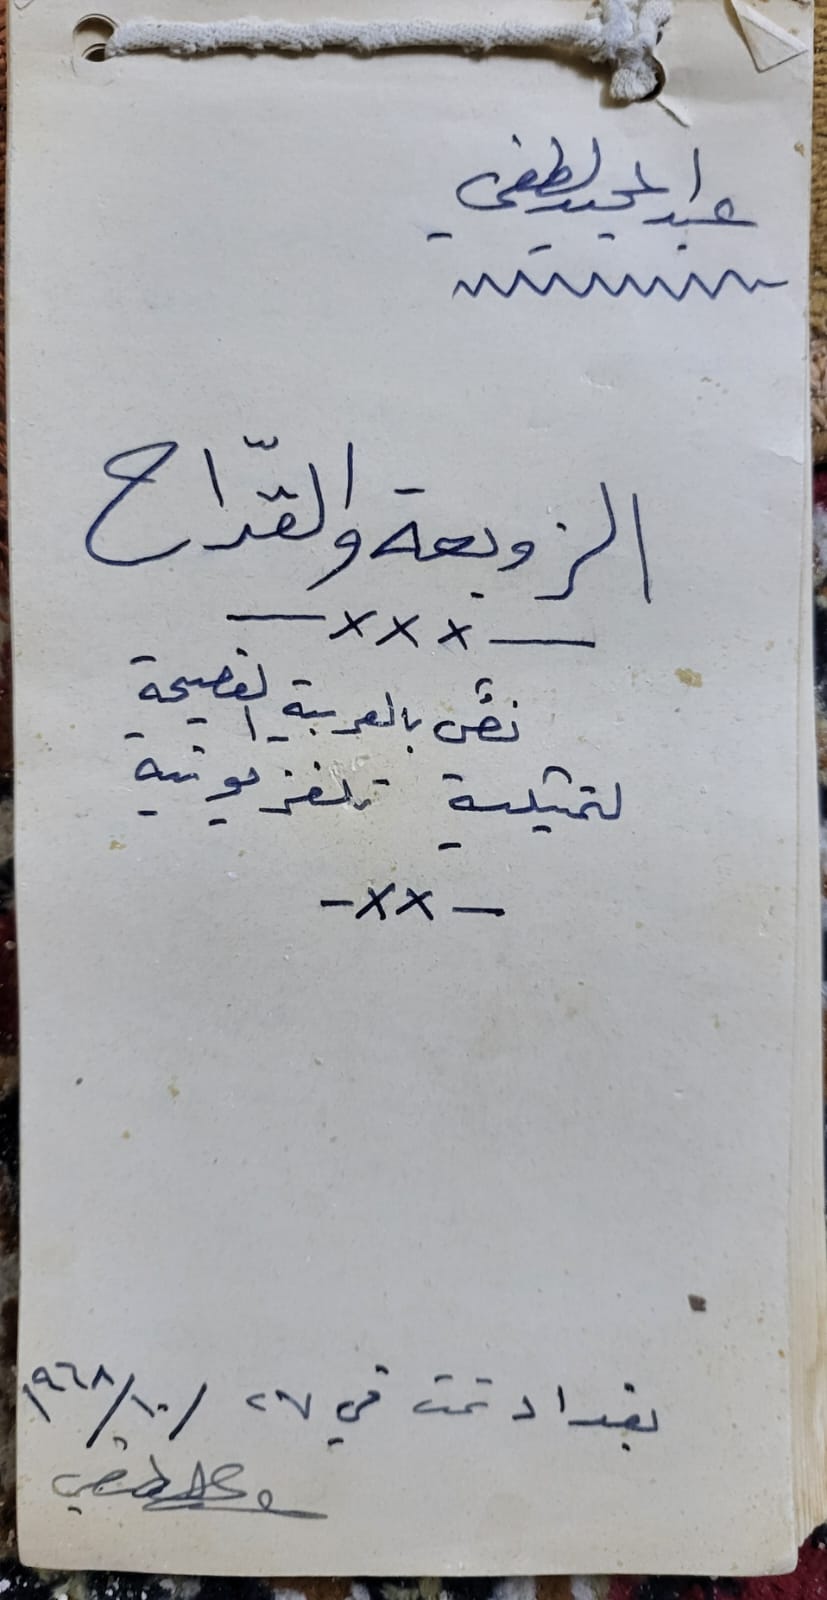 عبد المجيد لطفي
الزوبعة والقدّاح
— x x x —
نصّ بالعربية الفصيحة
لتمثيلية تلفزيونية
— x x —
بغداد تمت في ٢٧ / ١٠ / ١٩٦٨